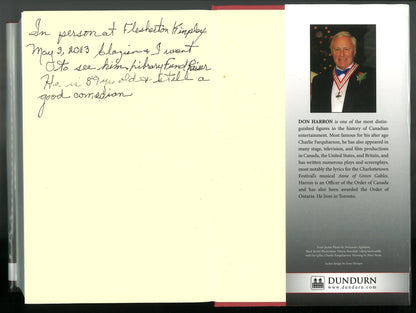 In person at Flesherton Kimplex
May 3, 2013 & I went
to see him, Library Fund Raiser
He is 89 yr old & still a
good comedian
DON HARRON is one of the most distin-
guished figures in the history of Canadian
entertainment. Most famous for his alter ego
Charlie Farquharson, he has also appeared in
many stage, television, and film productions
in Canada, the United States, and Britain, and
has written numerous plays and screenplays,
most notably the lyrics for the Charlottetown
Festival's musical Anne of Green Gables.
Harron is an Officer of the Order of Canada
and has also been awarded the Order of
Ontario. He lives in Toronto.
DUNDURN
www.dundurn.com